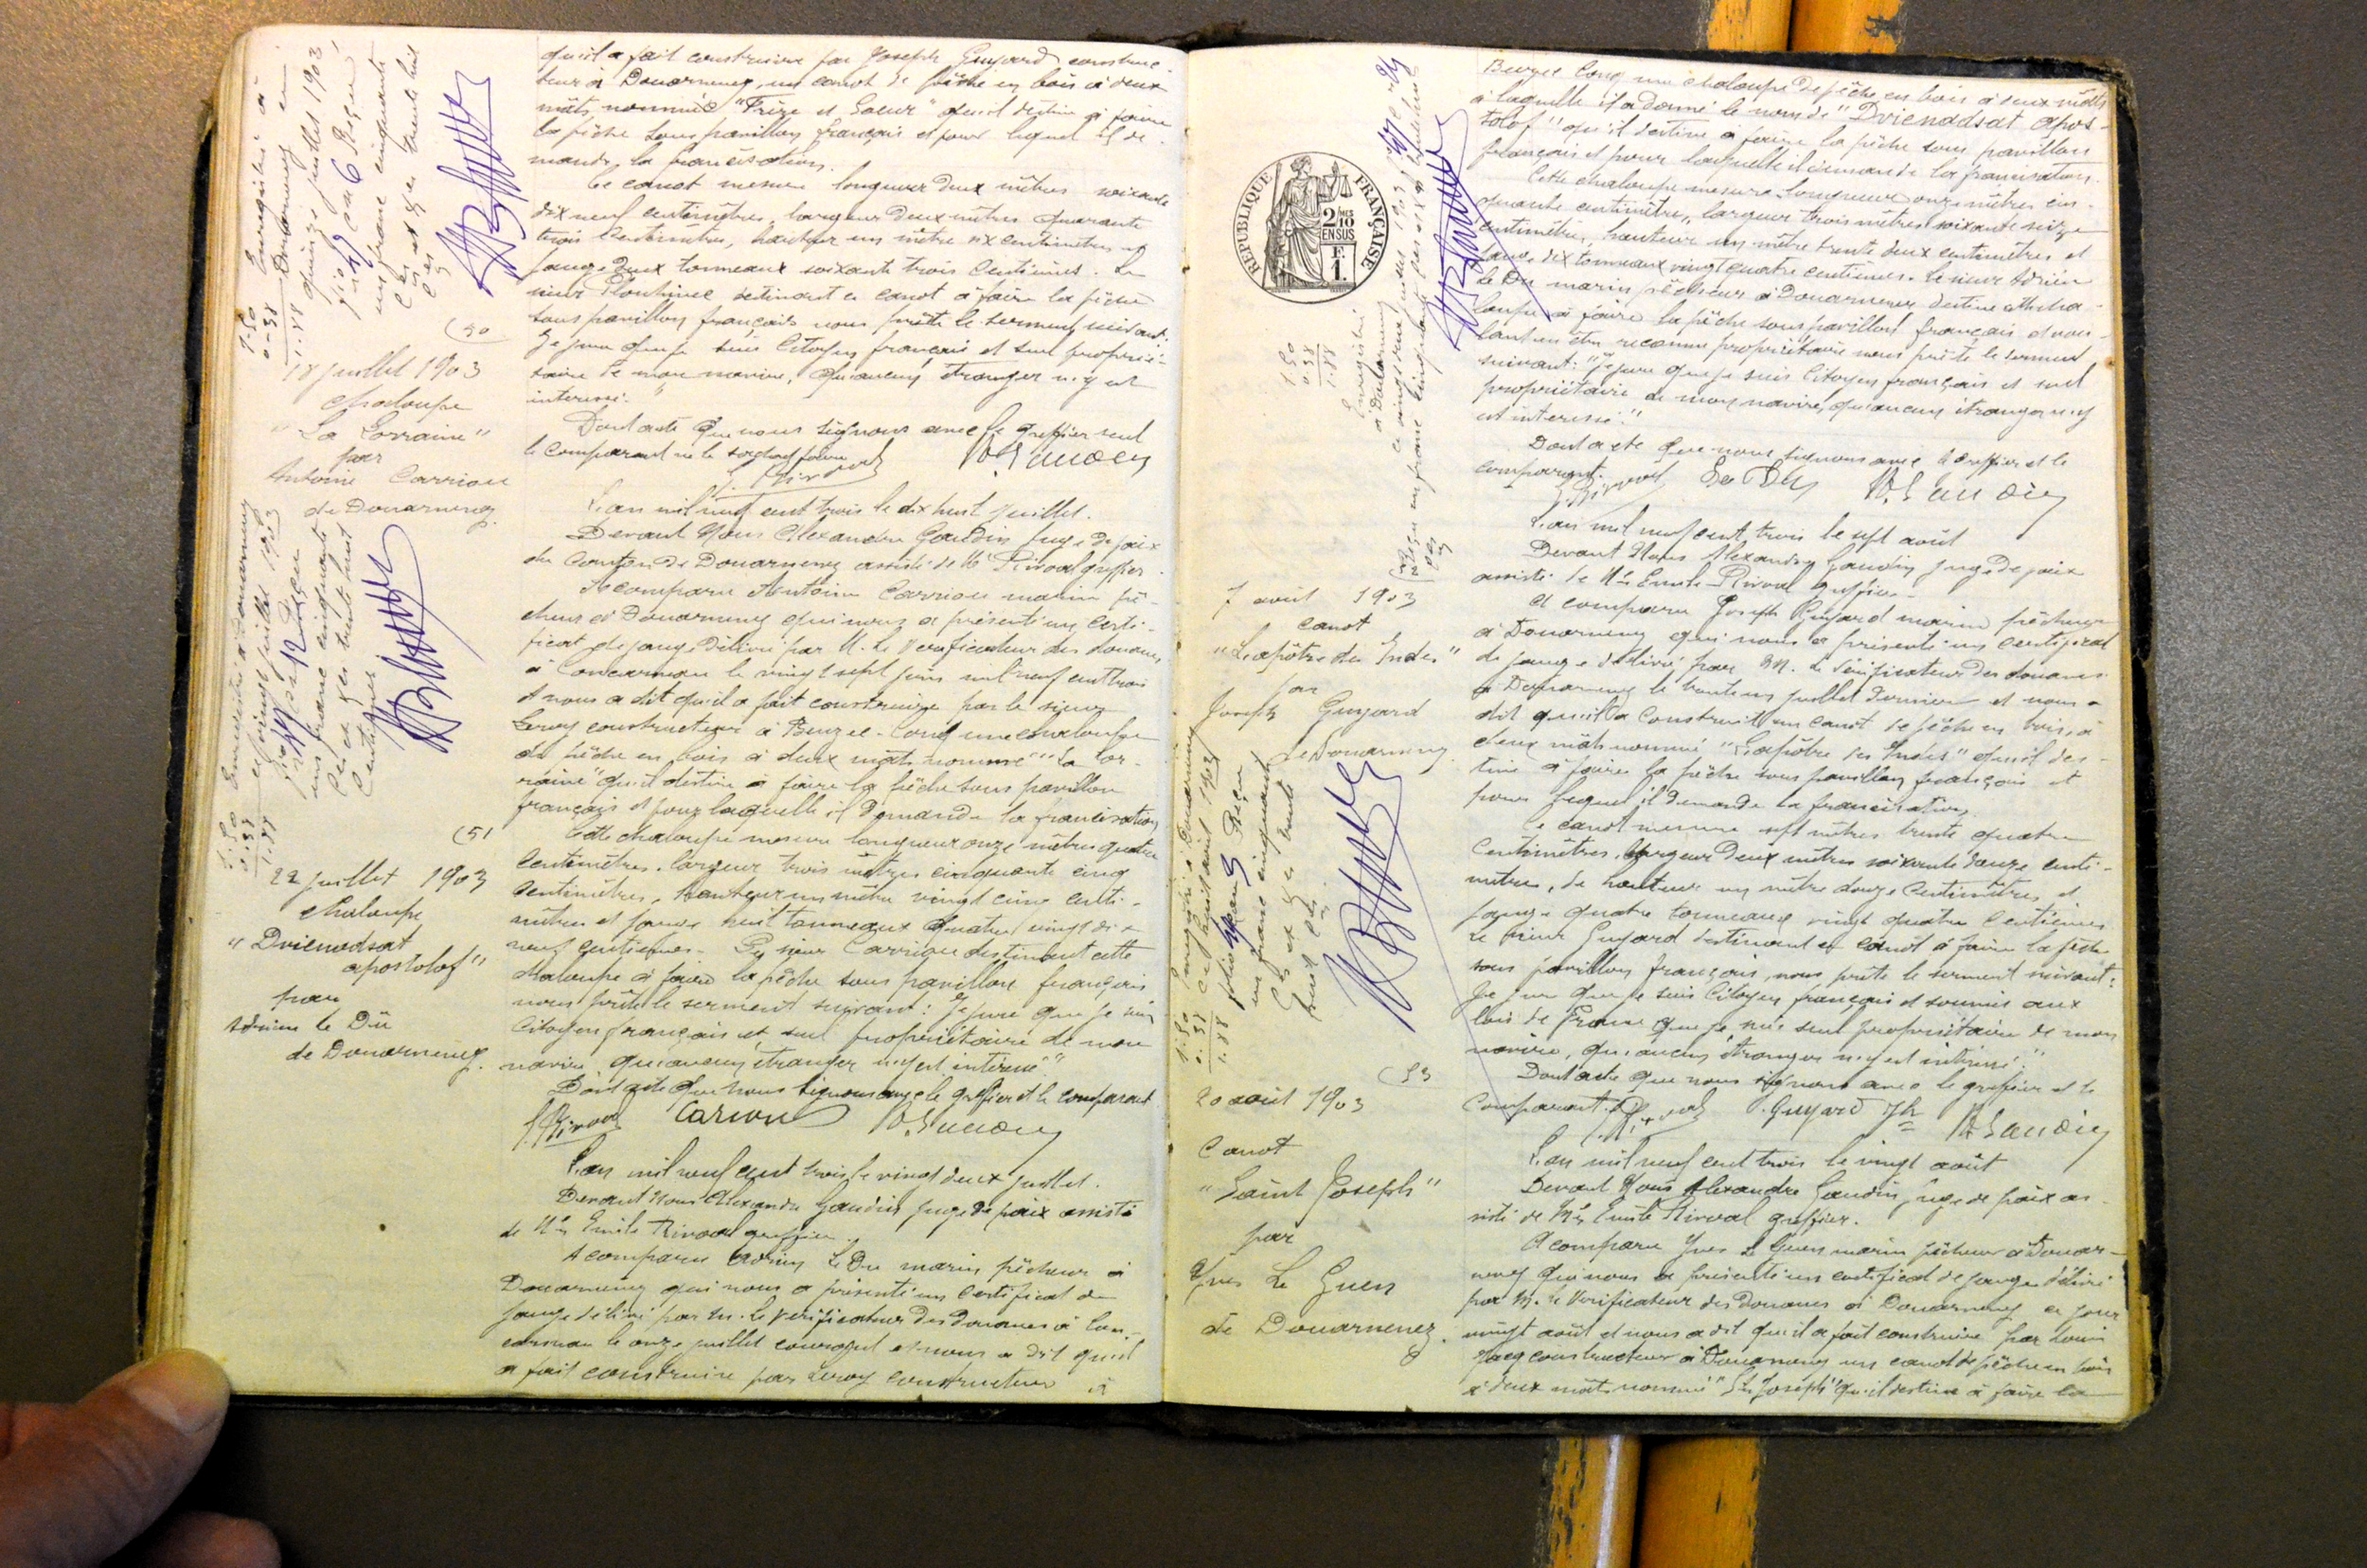 qu'il a fait construire par Joseph Guyard construc-
teur à Douarnenez, un canot de pêche en bois à deux
mâts nommé "Frère et Soeur" qu'il destine à faire
la pêche sous pavillon français et pour lequel il de-
mande la francisation.
Ce canot mesure longueur deux mètres soixante
dix neuf centimètres, largeur deux mètres quarante
trois centimètres, hauteur un mètre six centimètres et
jauge deux tonneaux soixante trois centièmes. Le
sieur Plouhinec destinant ce canot à faire la pêche
sous pavillon français nous prête le serment suivant:
Je jure que je suis Citoyen français et seul proprié-
taire de mon navire, qu'aucun étranger n'y est
interessé."
Dont acte que nous signons avec le greffier seul
le comparant ne le sachant faire
Enregistré à
Douarnenez
quinze juillet 1903
Reçu
un franc cinquante
trente huit
1.50
0.38
1.88
(50
18 juillet 1903
Chaloupe
"La Lorraine"
par
Antoine Carriou
de Douarnenez.
L'an mil neuf cent trois le dix huit juillet.
Devant Nous Alexandre Gaudin juge de paix
du canton de Douarnenez assisté de Me Rivoal greffier.
A comparu Antoine Carriou marin pê-
cheur à Douarnenez qui nous a présenté un certi-
ficat de jauge délivré par M. le Vérificateur des douanes
à Concarneau le vingt sept juin mil neuf cent trois
et nous a dit qu'il a fait construire par le sieur
Leroy constructeur à Beuzec-Conq une chaloupe
de pêche en bois à deux mâts nommé "La Lor-
raine" qu'il destine à faire la pêche sous pavillon
français et pour laquelle il demande la francisation
Cette chaloupe mesure longueur onze mètres quatre
centimètres, largeur trois mètres cinquante cinq
centimètres, hauteur un mètre vingt cinq centi-
mètres et jauge huit tonneaux quatre vingt dix
neuf centièmes. Le sieur Carriou destinant cette
chaloupe à faire la pêche sous pavillon français
nous prête le serment suivant: "Je jure que je suis
Citoyen français et seul propriétaire de mon
navire, qu'aucun étranger n'y est intéressé."
Dont acte que nous signons avec le greffier et le comparant
Cariou
Enregistré à Douarnenez
juillet 1903
Reçu
un franc cinquante
trente huit
Centimes
1.50
0.38
1.88
(51
22 juillet 1903
Chaloupe
"Drienadsat
apostolof"
par
Adrien le Dû
de Douarnenez.
L'an mil neuf cent trois le vingt deux juillet.
Devant Nous Alexandre Gaudin juge de paix assisté
de Me Emile Rivoal greffier.
A comparu Adrien Le Du marin pêcheur à
Douarnenez qui nous a présenté un certificat de
jauge délivré par M. le Vérificateur des douanes à Con-
carneau le onze juillet courant et nous a dit qu'il
a fait construire par Leroy constructeur à
Beuzec Conq une chaloupe de pêche en bois à deux mâts
à laquelle il a donné le nom de "Drienadsat apos-
tolof" qu'il destine à faire la pêche sous pavillon
français et pour laquelle il demande la francisation.
Cette chaloupe mesure longueur onze mètres cin-
quante centimètres, largeur trois mètres soixante seize
centimètres, hauteur un mètre trente deux centimètres et
jauge dix tonneaux vingt quatre centièmes. Le sieur Adrien
Le Du marin pêcheur à Douarnenez destine cette cha-
loupe à faire la pêche sous pavillon français et vou-
lant en être reconnu propriétaire nous prête le serment
suivant: "Je jure que je suis Citoyen français et seul
propriétaire de mon navire, qu'aucun étranger n'y
est intéressé."
Dont acte que nous signons avec le greffier et le
comparant.
Le Du
REPUBLIQUE FRANÇAISE
2/10 MES
EN SUS
1 F.
Enregistré
à Douarnenez
1.50
0.38
1.88
7 août 1903
Canot
"L'apôtre des Indes"
par
Joseph Guyard
de Douarnenez
L'an mil neuf cent trois le sept août
Devant Nous Alexandre Gaudin juge de paix
assisté de Me Emile Rivoal greffier.
A comparu Joseph Guyard marin pêcheur
à Douarnenez qui nous a présenté un certificat
de jauge délivré par M. le Vérificateur des douanes
à Douarnenez le trente un juillet dernier et nous a
dit qu'il a construit un canot de pêche en bois, à
deux mâts nommé "L'apôtre des Indes" qu'il des-
tine à faire la pêche sous pavillon français et
pour lequel il demande la francisation.
Ce canot mesure sept mètres trente quatre
centimètres, largeur deux mètres soixante douze centi-
mètres, de hauteur un mètre douze centimètres et
jauge quatre tonneaux vingt quatre centièmes
Le sieur Guyard destinant ce canot à faire la pêche
sous pavillon français, nous prête le serment suivant:
Je jure que je suis Citoyen français et soumis aux
lois de France que je suis seul propriétaire de mon
navire, qu'aucun étranger n'y est intéressé."
Dont acte que nous signons avec le greffier et le
comparant.
Guyard Jh
Enregistré à Douarnenez
ce huit août 1903
Reçu
un franc cinquante
trente
huit
1.50
0.38
1.88
(53
20 août 1903
Canot
"Saint Joseph"
par
Yves Le Guen
de Douarnenez.
L'an mil neuf cent trois le vingt août
Devant Nous Alexandre Gaudin juge de paix as-
sisté de Me Emile Rivoal greffier.
A comparu Yves Le Guen marin pêcheur à Douar-
nenez qui nous a présenté un certificat de jauge délivré
par M. le Vérificateur des Douanes à Douarnenez ce jour
vingt août et nous a dit qu'il a fait construire par Louis
constructeur à Douarnenez un canot de pêche en bois
à deux mâts nommé "St Joseph" qu'il destine à faire la